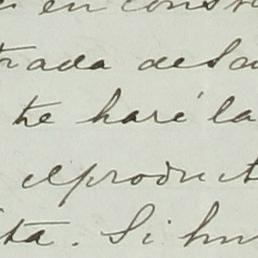 en cons
trada desa
te haré la
el product
ita. Si hu